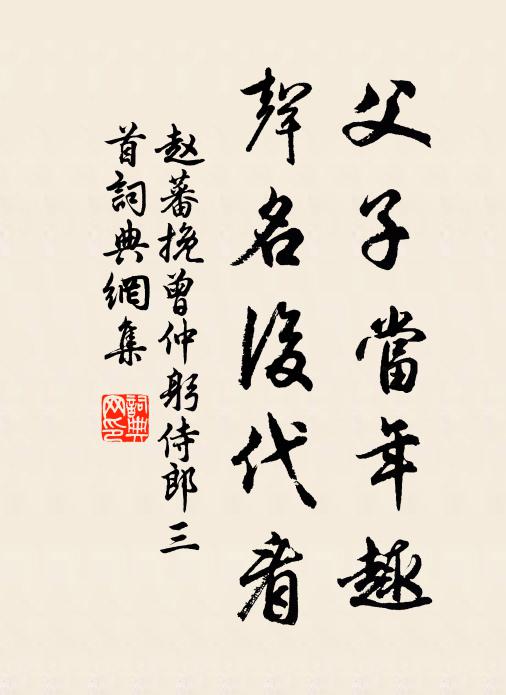 父子當年趣
聲名後代看
赵蕃挽曾仲躬侍郎三
首詞典網集
詞典
网印